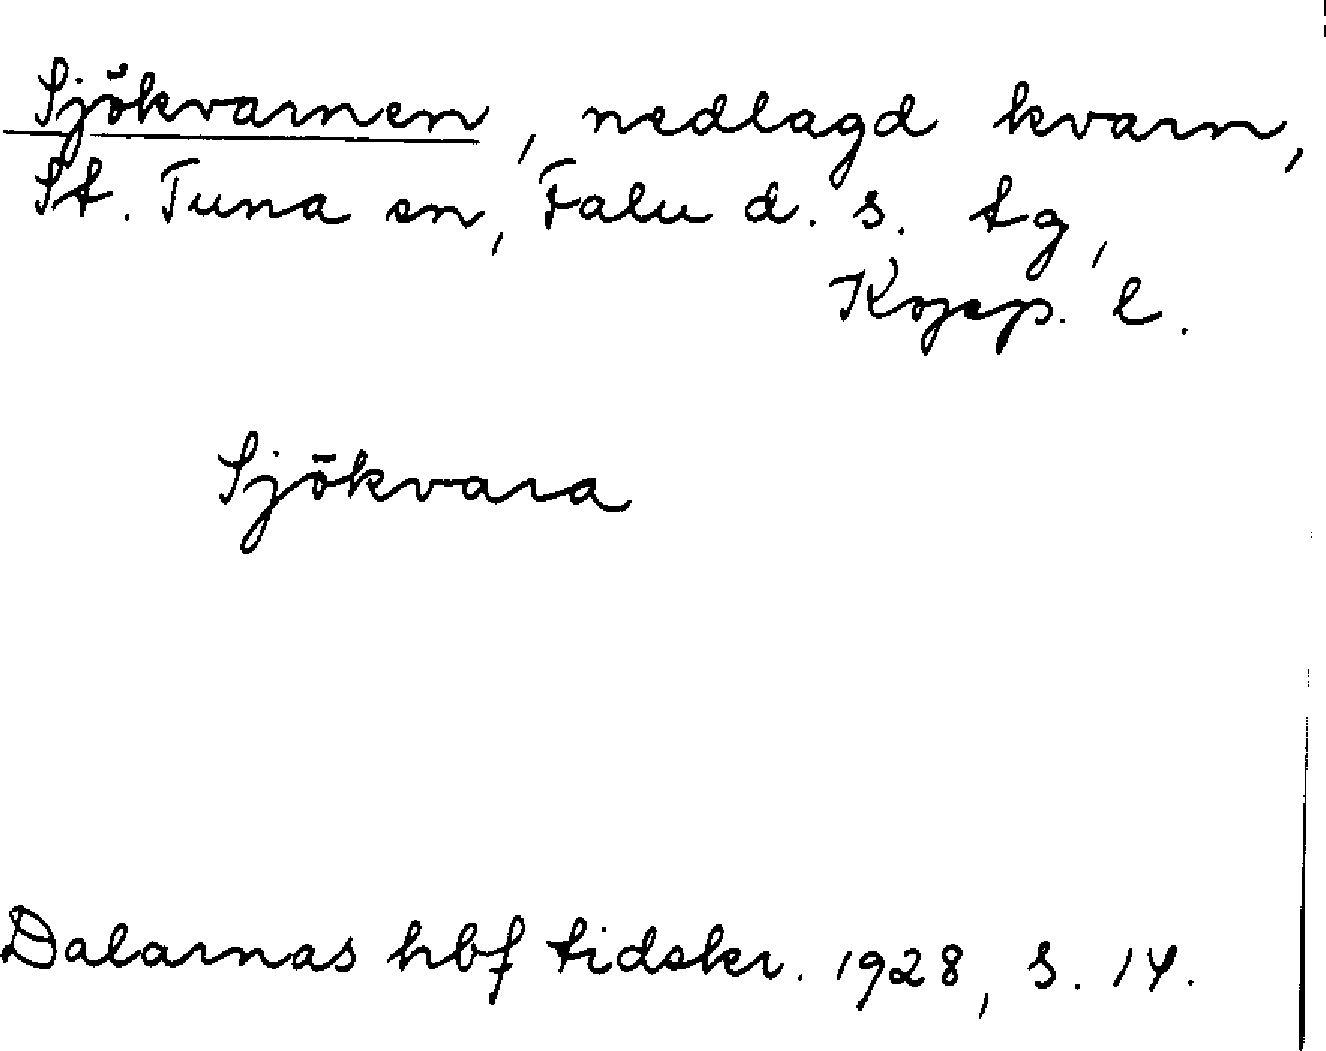 Sjökvarnen, nedlagd kvarn,
St. Tuna sn, Falu d. s. tg,
Kopp. l.
Sjökvara
Dalarnas hbf tidskr. 1928, s. 14.